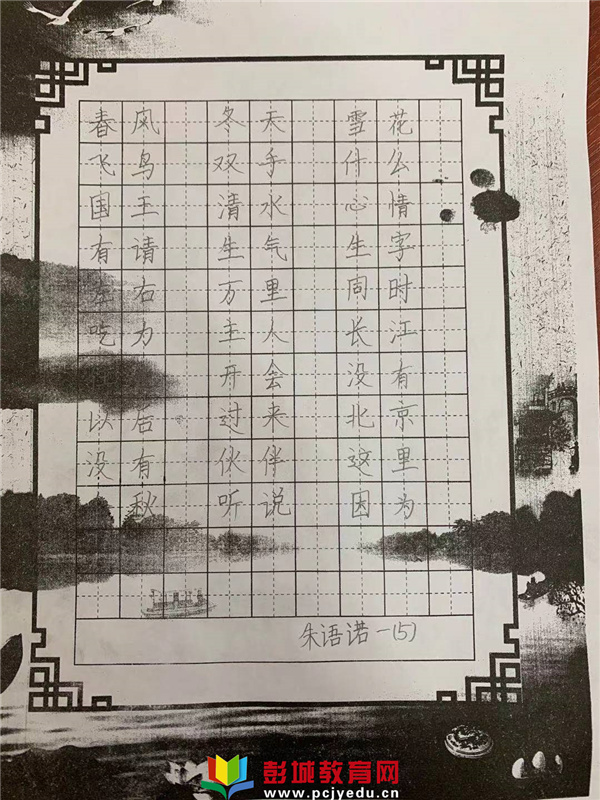 春风 冬天 雪花
飞鸟 双手 什公
国王 清水 心情
有请 生气 生字
左右 万里 同时
吃为 主人 长江
开会 没有
以后 过来 北京
没有 伙伴 这里
秋 听说 因为
朱语诺一(5)
彭城教育网
www.pcjyedu.cn